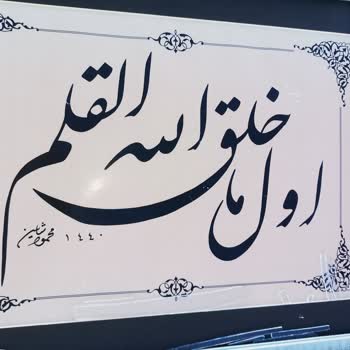 اول ما خلق الله القلم
محمود شاهين ١٤٤٠